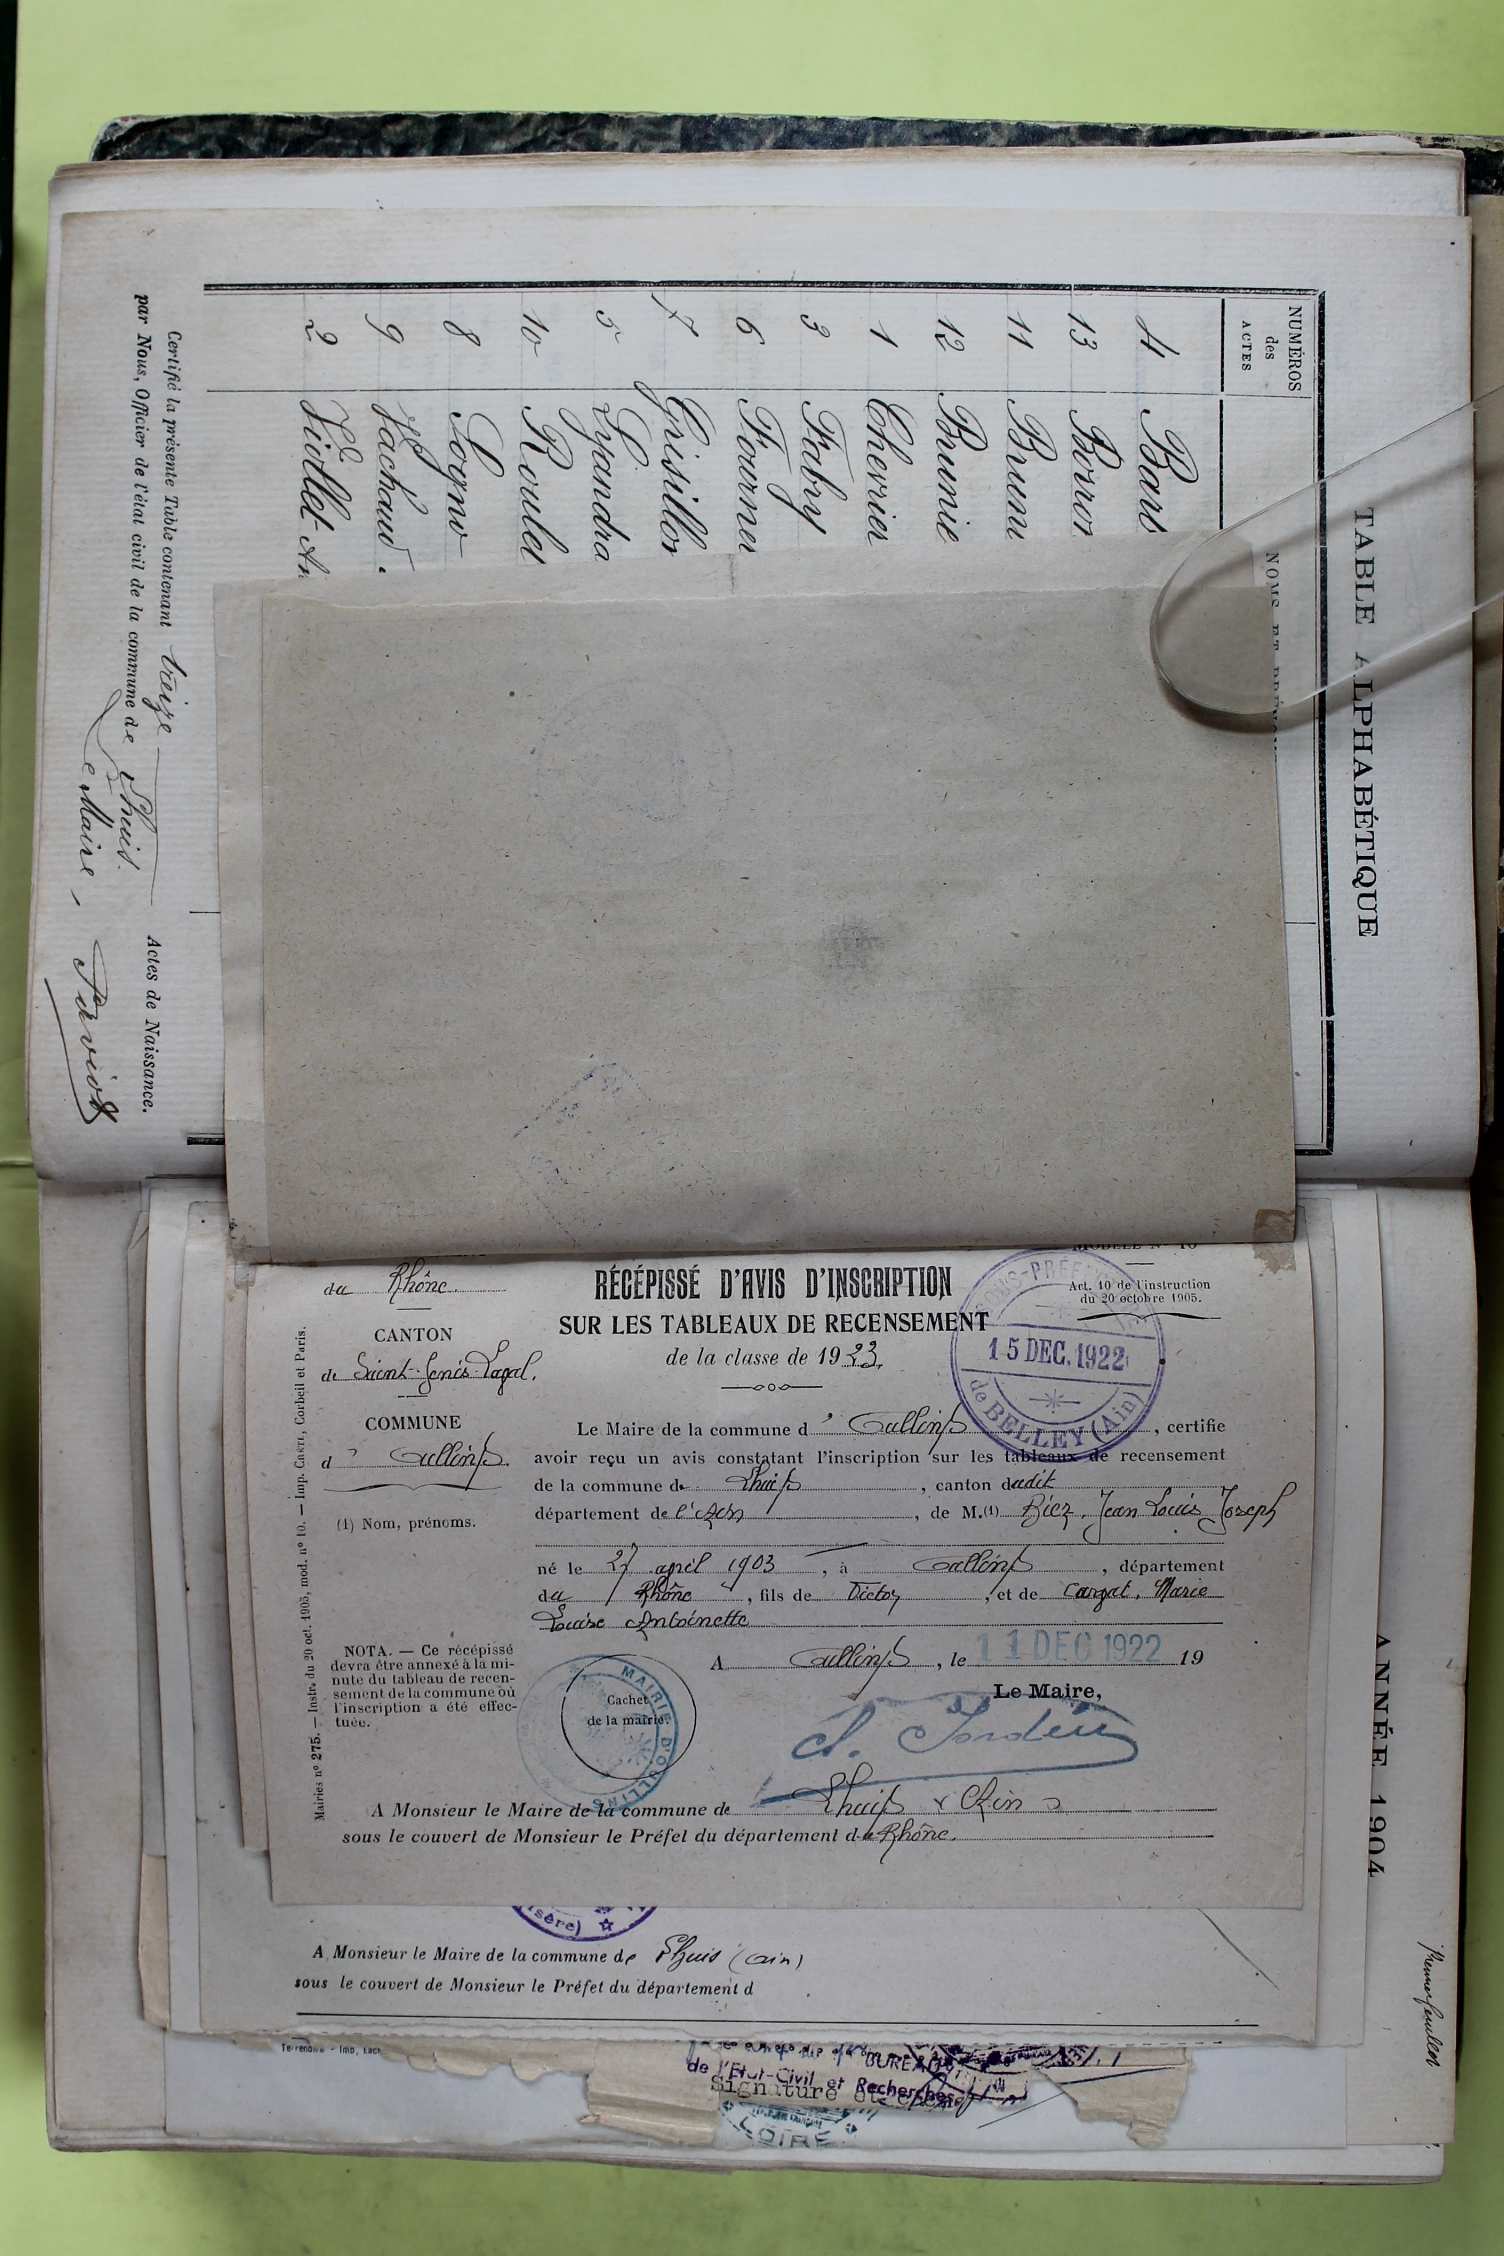 TABLE ALPHABÉTIQUE
NUMÉROS
des
ACTES
NOMS ET
4 Bard
13 Borron
11 Brun
12 Brunie
1 Chevrier
3 Fabry
6 Fournier
7 Grisillon
5 Lyandra
10 Roulet
8 Sogno
9 Vachaud
2 Viollet An
Certifié la présente Table contenant treize
par Nous, Officier de l'état civil de la commune de Lhuis.
Le Maire,
Actes de Naissance.
MODÈLE N° 10
du Rhône.
RÉCÉPISSÉ D'AVIS D'INSCRIPTION
Act. 10 de l'instruction
du 20 octobre 1905.
SUR LES TABLEAUX DE RECENSEMENT
de la classe de 1923.
SOUS-PRÉFECTURE
15 DEC. 1922
de BELLEY (Ain)
CANTON
de Saint-Genis-Laval.
COMMUNE
d'Oullins.
(1) Nom, prénoms.
Le Maire de la commune d'Oullins, certifie
avoir reçu un avis constatant l'inscription sur les tableaux de recensement
de la commune de Lhuis, canton dudit
département de l'Ain, de M.(1) Biez, Jean Louis Joseph
né le 27 april 1903, à Oullins, département
du Rhône, fils de Victor, et de Cargat, Marie
Louise Antoinette
NOTA. — Ce récépissé
devra être annexé à la mi-
nute du tableau de recen-
sement de la commune où
l'inscription a été effec-
tuée.
A Oullins, le 11 DEC 1922 19
Le Maire,
Cachet
de la mairie.
MAIRIE D'OULLINS
A Monsieur le Maire de la commune de Lhuis Ain
sous le couvert de Monsieur le Préfet du département du Rhône.
Mairies n° 275. — Instr. du 20 oct. 1905, mod. n° 10. — Imp. CRÉTÉ, Corbeil et Paris.
(Isère)
A Monsieur le Maire de la commune de Lhuis (ain)
sous le couvert de Monsieur le Préfet du département d
ANNÉE 1904
BUREAU
de l'Etat-Civil et Recherches
Signature
LOIRE